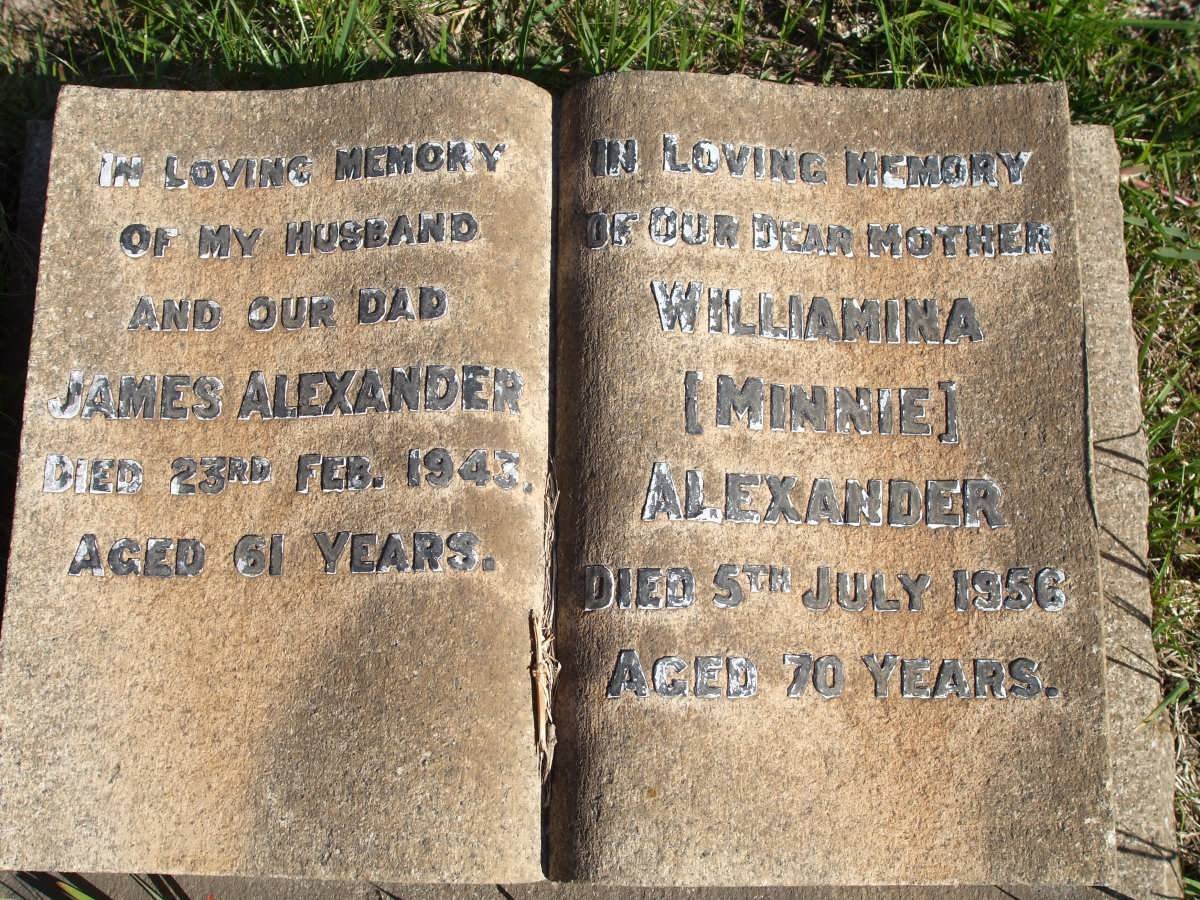 In Loving Memory
Of My Husband
And Our Dad
James Alexander
Died 23rd Feb. 1943.
Aged 61 Years.
In Loving Memory
Of Our Dear Mother
Williamina
[Minnie]
Alexander
Died 5th July 1956
Aged 70 Years.